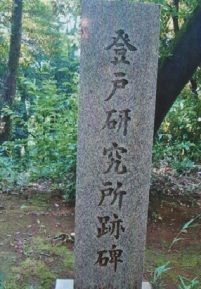 登戸研究所跡碑